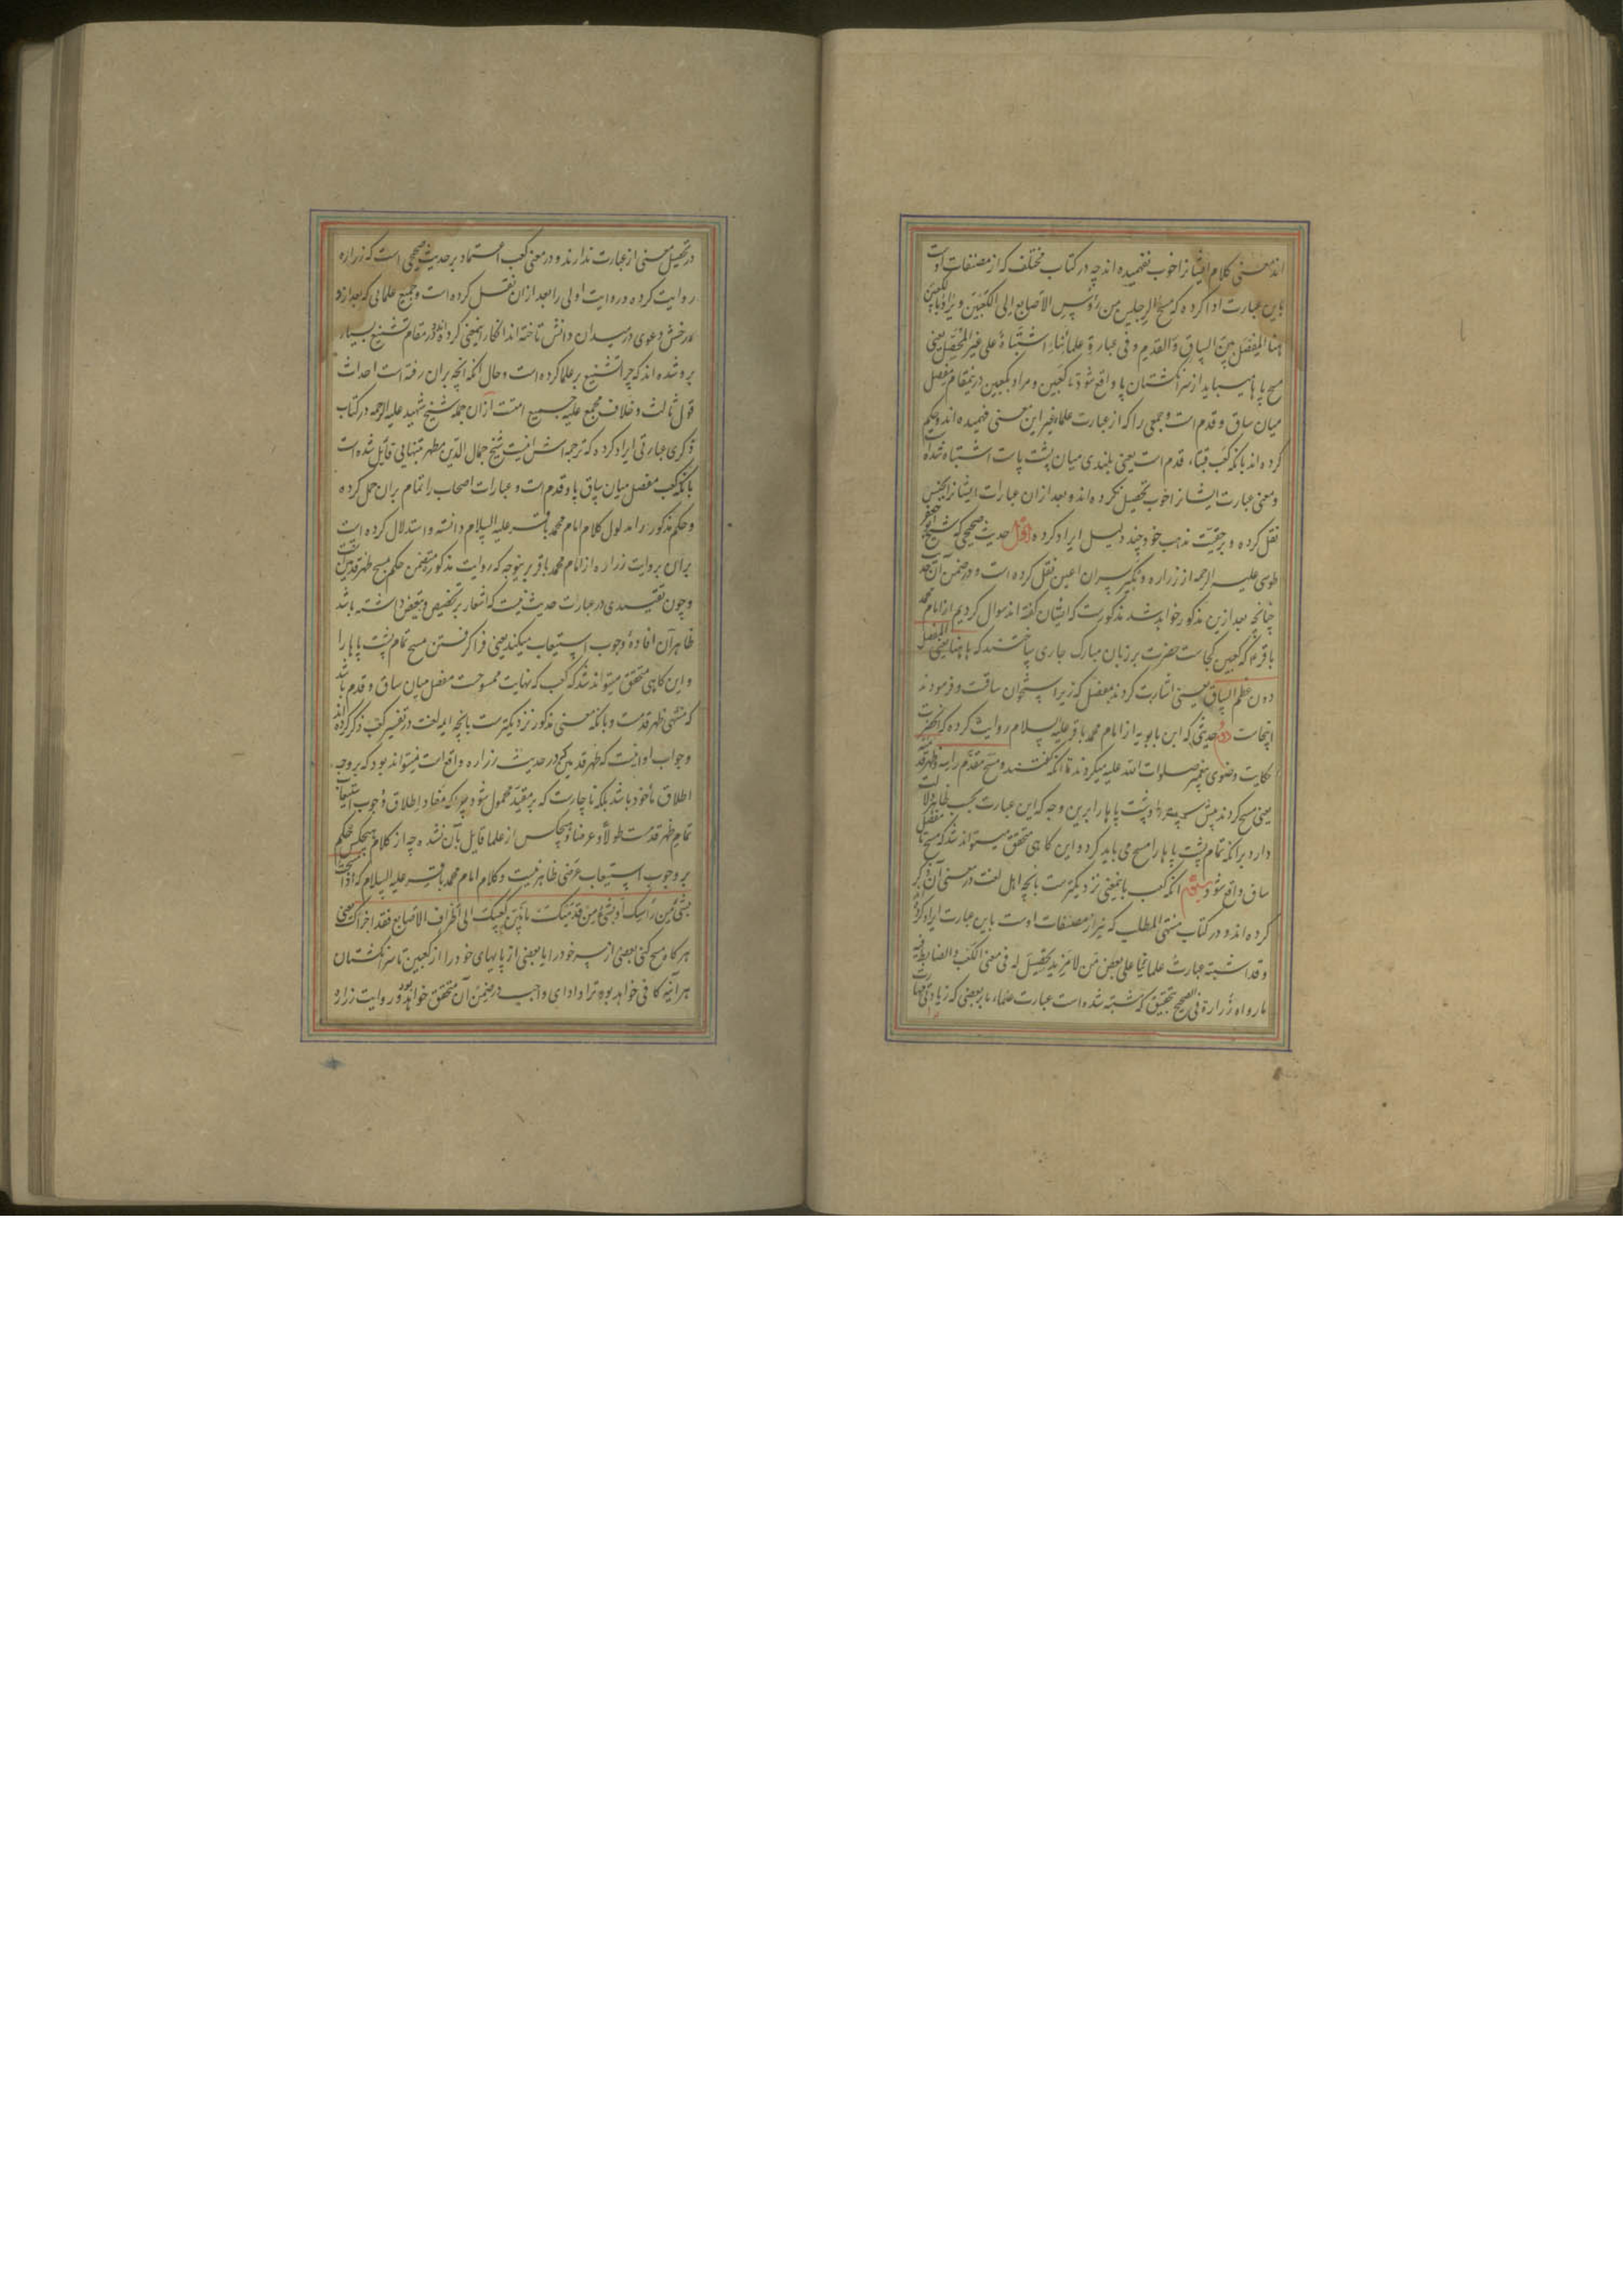 اند معنی کلام ایشانرا خوب نفهمیده اند چه در کتاب مختلف که از مصنفات اوست
باین عبارت ادا کرده که مسح الرجلین من رؤس الاصابع الی الکعبین و یراد بالکعبین
هنا المفصل بین الساق و القدم و فی عبارة علمائنا اشتباه علی غیر المحصل یعنی
مسح پاها میباید از سر انگشتان پا واقع شود تا کعبین و مراد بکعبین درینمقام مفصل
میان ساق و قدم است و جمعی را که از عبارت علما غیر این معنی فهمیده اند و حکم
کرده اند بانکه کعب قبهٔ قدم است یعنی بلندی میان پشت پاست اشتباه شده است
و معنی عبارت ایشانرا خوب تحصیل نکرده اند و بعد از ان عبارات ایشانرا
نقل کرده و بر حقیت مذهب خود چند دلیل ایراد کرده اول حدیث صحیحی که شیخ ابو جعفر
طوسی علیه الرحمه از زراره و بکیر پسران اعین نقل کرده است و در ضمن آن
چنانچه بعد ازین مذکور خواهد شد مذکورست که ایشان گفته اند سوال کردیم از امام محمد
باقر ع که کعبین کجاست حضرت بر زبان مبارک جاری ساختند که هاهنا یعنی المفصل
دون عظم الساق یعنی اشارت کردند بمفصل که زیر استخوان ساقست و فرمودند
اینجاست دوم حدیثی که ابن بابویه از امام محمد باقر علیه السلام روایت کرده که آنحضرت
حکایت وضوی پیغمبر صلوات الله علیه میکردند تا انکه گفتند و مسح مقدم راسه و ظهر قدمیه
یعنی مسح کردند پیش سر و پشت پاها را برین وجه که این عبارت بحسب ظاهر دلالت
دارد برانکه تمام پشت پاها را مسح می باید کرد و این کاهی متحقق میتواند شد که مسح تا مفصل
ساق واقع شود سیوم انکه کعب باینمعنی نزدیکترست بانچه اهل لغت در معنی آن ذکر
کرده اند و در کتاب منتهی المطلب که نیز از مصنفات اوست باین عبارت ایراد کرده
و قد اشتبه عبارة علمائنا علی بعض من لا مزید تحصیل له فی معنی الکعب و الضابط فیه
ما رواه زرارة فی الصحیح بتحقیق که مشتبه شده است عبارت علماء ما بر بعضی که زیادتی
در تحصیل معنی از عبارت ندارند و در معنی کعب اعتماد بر حدیث صحیحی است که زراره
روایت کرده و روایت اولی را بعد ازان نقل کرده است و جمیع علمائی که بعد ازو
رخش دعوی در میدان دانش تاخته اند انکار اینمعنی کرده اند و در مقام تشنیع بسیار
برو شده اند که چرا تشنیع بر علما کرده است و حال انکه انچه بران رفته است احداث
قول ثالث و خلاف مجمع علیه جمیع امتست ازان جمله شیخ شهید علیه الرحمه در کتاب
ذکری عبارتی ایراد کرده که ترجمه اش اینست شیخ جمال الدین مطهر بتنهایی قایل شده است
بانکه کعب مفصل میان ساق پا و قدم است و عبارات اصحاب را تمام بران حمل کرده
و حکم مذکور را مدلول کلام امام محمد باقر علیه السلام دانسته و استدلال کرده است
بران بروایت زراره از امام محمد باقر برینوجه که روایت مذکور متضمن حکم مسح ظهر قدمین است
و چون تقییدی در عبارات حدیث نیست که اشعار بر تخصیص و تبعیض داشته باشد
ظاهر آن افادهٔ وجوب استیعاب میکند یعنی فرا کرفتن مسح تمام پشت پاها را
و این کاهی متحقق میتواند شد که کعب که نهایت ممسوحست مفصل میان ساق و قدم باشد
که منتهی ظهر قدمست و بانکه معنی مذکور نزدیکترست بانچه ایمه لغت در تفسیر کعب ذکر کرده اند
و جواب او اینست که ظهر قدمین که در حدیث زراره واقع است نمیتواند بود که بر وجه
اطلاق مأخوذ باشد بلکه ناچارست که بر مقید محمول شود چرا که مفاد اطلاق وجوب استیعاب
تمام ظهر قدمست طولاً و عرضاً و هیچکس از علما قایل بآن نشده چه از کلام هیچکس حکم
بر وجوب استیعاب عرضی ظاهر نیست و کلام امام محمد باقر علیه السلام که اذا مسحت
بشئ من راسک او بشئ من قدمیک ما بین کعبیک الی اطراف الاصابع فقد اجزاک یعنی
هر کاه مسح کنی بعضی از سر خود را یا بعضی از پایهای خود را از کعبین تا سر انگشتان
هر آینه کافی خواهد بود ترا و ادای واجب در ضمن آن متحقق خواهد بود و روایت زراره